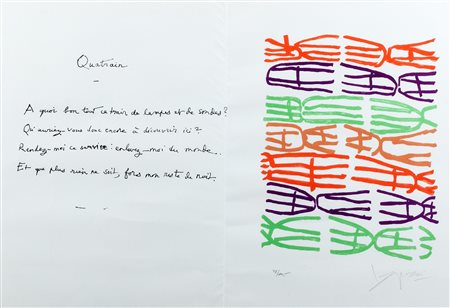 Quatrain
A quoi bon tout ce train de lampes et de sondes ?
Qu'auriez-vous donc encore à découvrir ici ?
Rendez-moi ce service : enlevez-moi du monde...
Et que plus rien ne soit, fors mon reste de nuit.